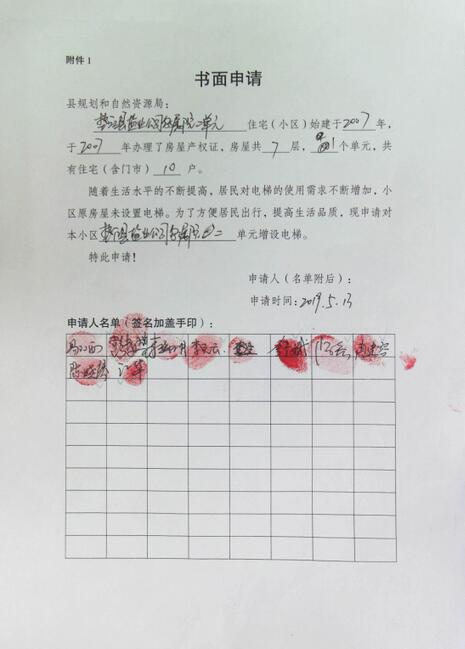 附件1
书面申请
县规划和自然资源局：
垫江县盐业公司家属院二单元 住宅（小区）始建于2007年，
于2007年办理了房屋产权证，房屋共7层，1个单元，共
有住宅（含门市）10户。
随着生活水平的不断提高，居民对电梯的使用需求不断增加，小
区原房屋未设置电梯。为了方便居民出行，提高生活品质，现申请对
本小区垫江县盐业公司家属院二单元增设电梯。
特此申请！
申请人（名单附后）：
申请时间：2019.5.13
申请人名单（签名加盖手印）：